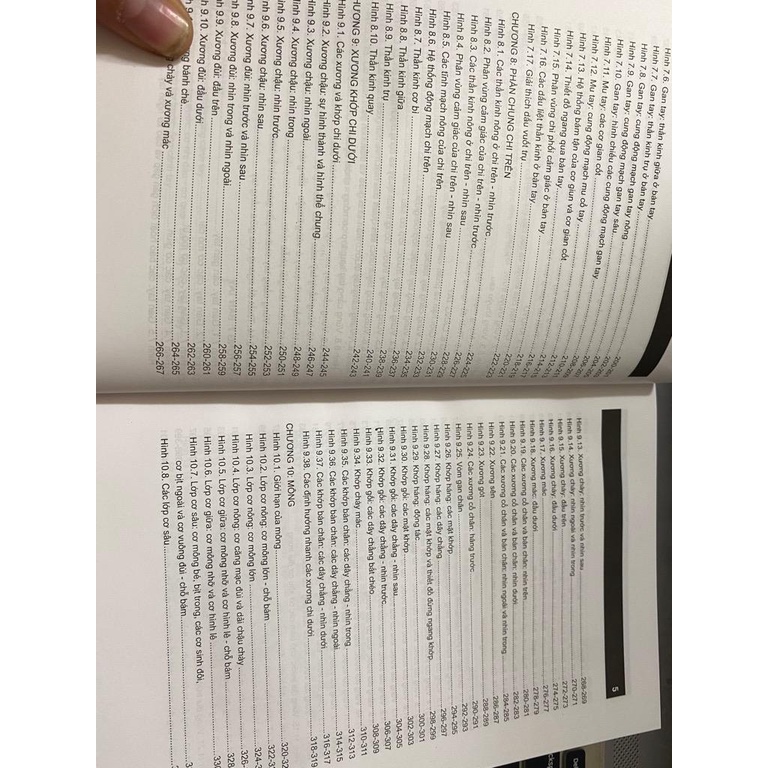 Hình 7.6. Gan tay: thần kinh giữa ở bàn tay
Hình 7.7. Gan tay: thần kinh trụ ở bàn tay
Hình 7.8. Gan tay: cung động mạch gan tay nông
Hình 7.9. Gan tay: cung động mạch gan tay sâu
Hình 7.10. Gan tay: hình chiếu các cung động mạch gan tay
Hình 7.11. Mu tay: các cơ gian cốt
Hình 7.12. Mu tay: cung động mạch mu cổ tay
Hình 7.13. Hệ thống bám tận của cơ giun và cơ gian cốt
Hình 7.14. Thiết đồ ngang qua bàn tay
Hình 7.15. Phân vùng chi phối cảm giác ở bàn tay
Hình 7.16. Các dấu liệt thần kinh ở bàn tay
Hình 7.17. Giải thích dấu vuốt trụ
CHƯƠNG 8: PHÂN CHUNG CHI TRÊN
Hình 8.1. Các thần kinh nông ở chi trên - nhìn trước
Hình 8.2. Phân vùng cảm giác của chi trên - nhìn trước
Hình 8.3. Các thần kinh nông ở chi trên - nhìn sau
Hình 8.4. Phân vùng cảm giác của chi trên - nhìn sau
Hình 8.5. Các tĩnh mạch nông của chi trên
Hình 8.6. Hệ thống động mạch chi trên
Hình 8.7. Thần kinh cơ bì
Hình 8.8. Thần kinh giữa
Hình 8.9. Thần kinh trụ
Hình 8.10. Thần kinh quay 240-241
HƯƠNG 9: XƯƠNG KHỚP CHI DƯỚI
Hình 9.1. Các xương và khớp chi dưới 242-243
Hình 9.2. Xương chậu: sự hình thành và hình thể chung 244-245
Hình 9.3. Xương chậu: nhìn ngoài 246-247
Hình 9.4. Xương chậu: nhìn trong 248-249
Hình 9.5. Xương chậu: nhìn trước 250-251
Hình 9.6. Xương chậu: nhìn sau 252-253
9.7. Xương đùi: nhìn trước và nhìn sau 254-255
9.8. Xương đùi: nhìn trong và nhìn ngoài 256-257
9.9. Xương đùi: đầu trên 258-259
9.10. Xương đùi: đầu dưới 260-261
bánh chè 262-263
chày và xương mác 264-265
266-267
5
Hình 9.13. Xương chày: nhìn trước và nhìn sau 268-269
Hình 9.14. Xương chày: nhìn ngoài và nhìn trong 270-271
Hình 9.15. Xương chày: đầu trên 272-273
Hình 9.16. Xương chày: đầu dưới 274-275
Hình 9.17. Xương mác 276-277
Hình 9.18. Xương mác: đầu dưới 278-279
Hình 9.19. Các xương cổ chân và bàn chân: nhìn trên 280-281
Hình 9.20. Các xương cổ chân và bàn chân: nhìn dưới 282-283
Hình 9.21. Các xương cổ chân và bàn chân: nhìn ngoài và nhìn trong 284-285
Hình 9.22. Xương sên 286-287
Hình 9.23. Xương gót 288-289
Hình 9.24. Các xương cổ chân: hàng trước 290-291
Hình 9.25. Vòm gan chân 292-293
Hình 9.26. Khớp háng: các mặt khớp 294-295
Hình 9.27. Khớp háng: các dây chằng 296-297
Hình 9.28. Khớp háng: các mặt khớp và thiết đồ đứng ngang khớp 298-299
Hình 9.29. Khớp háng: động tác 300-301
Hình 9.30. Khớp gối: các mặt khớp 302-303
Hình 9.31. Khớp gối: các dây chằng - nhìn sau 304-305
Hình 9.32. Khớp gối: các dây chằng - nhìn trước 306-307
Hình 9.33. Khớp gối: các dây chằng bắt chéo 308-309
Hình 9.34. Khớp chày mác 310-311
Hình 9.35. Các khớp bàn chân: các dây chằng - nhìn trong 312-313
Hình 9.36. Các khớp bàn chân: các dây chằng - nhìn ngoài 314-315
Hình 9.37. Các khớp bàn chân: các dây chằng - nhìn dưới 316-317
Hình 9.38. Các định hướng nhanh các xương chi dưới 318-319
CHƯƠNG 10: MÔNG
Hình 10.1. Giới hạn của mông 320-32
Hình 10.2. Lớp cơ nông: cơ mông lớn - chỗ bám 322-3
Hình 10.3. Lớp cơ nông: cơ mông lớn 324-
Hình 10.4. Lớp cơ nông: cơ căng mạc đùi và dải chậu chày 326-
Hình 10.5. Lớp cơ giữa: cơ mông nhỡ và cơ hình lê - chỗ bám 328
Hình 10.6. Lớp cơ giữa: cơ mông nhỡ và cơ hình lê 33
Hình 10.7. Lớp cơ sâu: cơ mông bé, bịt trong, các cơ sinh đôi,
cơ bịt ngoài và cơ vuông đùi - chỗ bám
Hình 10.8. Các lớp cơ sâu